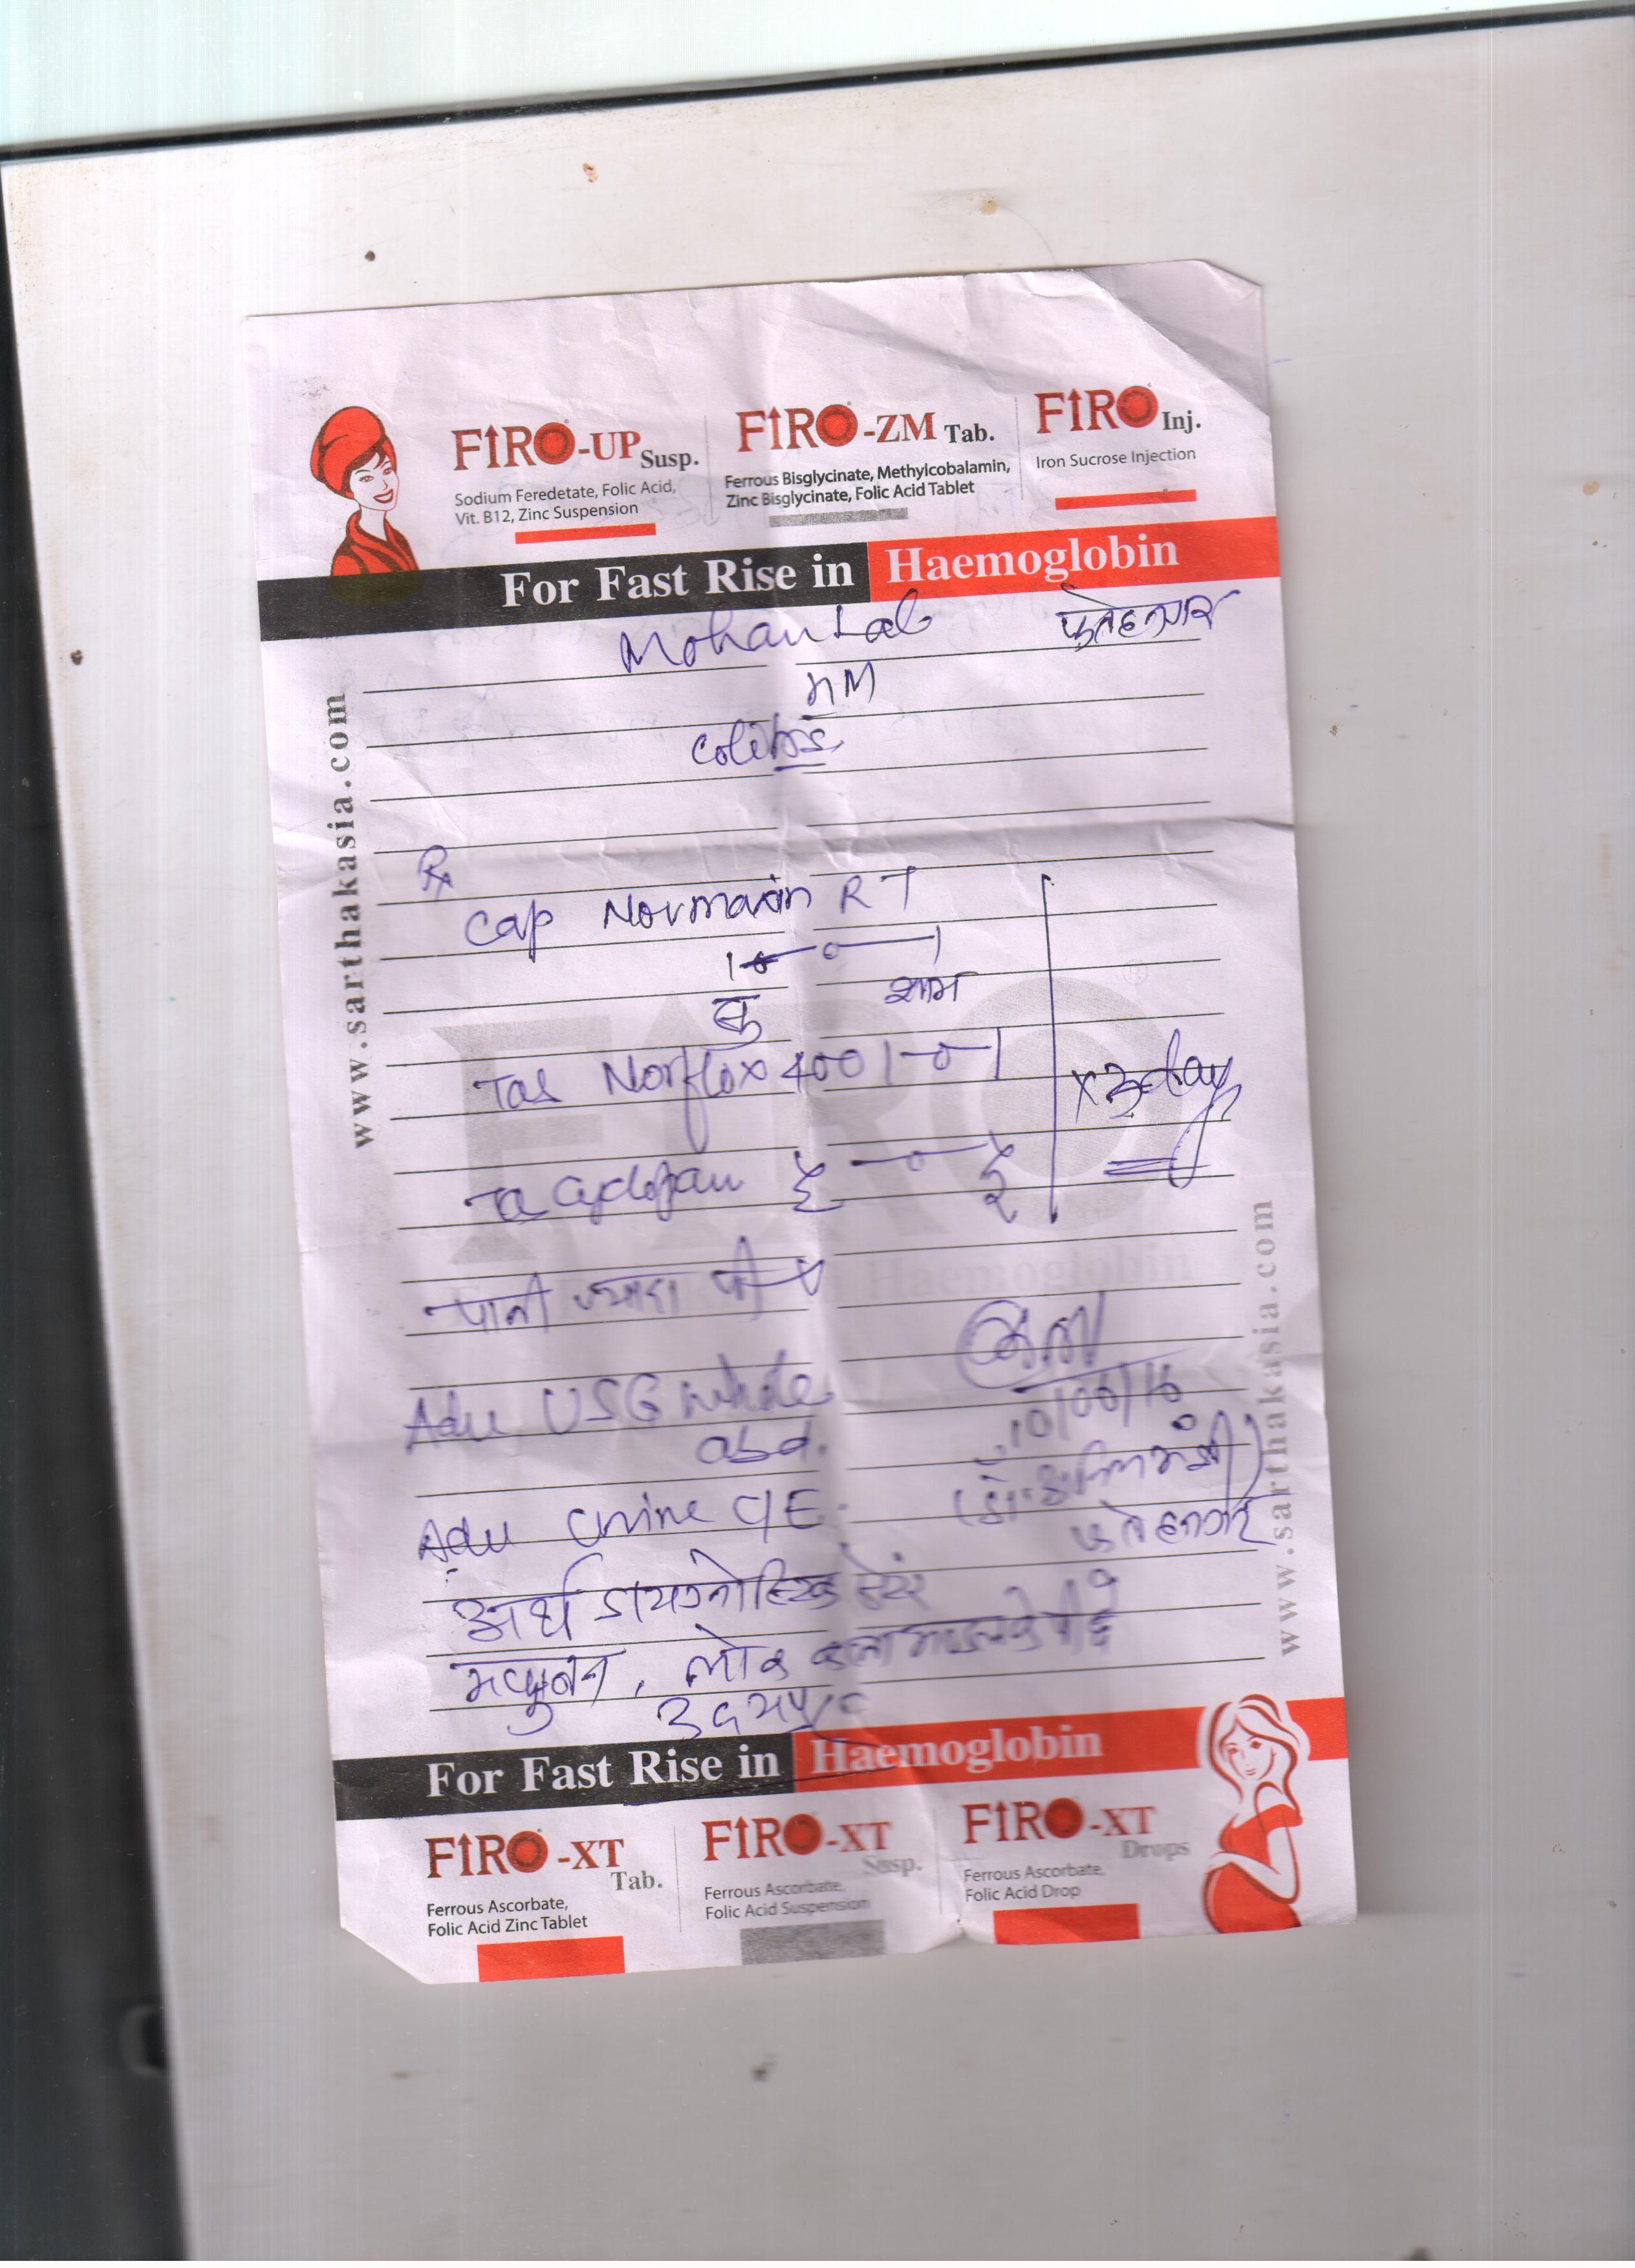 FIRO-UP Susp.
Sodium Feredetate, Folic Acid,
Vit. B12, Zinc Suspension
FIRO-ZM Tab.
Ferrous Bisglycinate, Methylcobalamin,
Zinc Bisglycinate, Folic Acid Tablet
FIRO Inj.
Iron Sucrose Injection
For Fast Rise in Haemoglobin
Mohan Lal फतेहनगर
Colitis
www.sarthakasia.com
Rx
Cap Normaxin RT
1 - 0 - 1
सु शाम
Tab Norflox 400 1-0-1
x 3 day
पानी ज्यादा पीये
Adv USG whole
abd.
10/06/16
Adv Urine C/E
फतेहनगर
अर्थ डायग्नोस्टिक सेंटर
मधुबन, लोक कला मण्डल के पीछे
उदयपुर
www.sarthakasia.com
FIRO
Haemoglobin
For Fast Rise in Haemoglobin
FIRO-XT Tab.
Ferrous Ascorbate,
Folic Acid Zinc Tablet
FIRO-XT Susp.
Ferrous Ascorbate,
Folic Acid Suspension
FIRO-XT Drops
Ferrous Ascorbate,
Folic Acid Drop